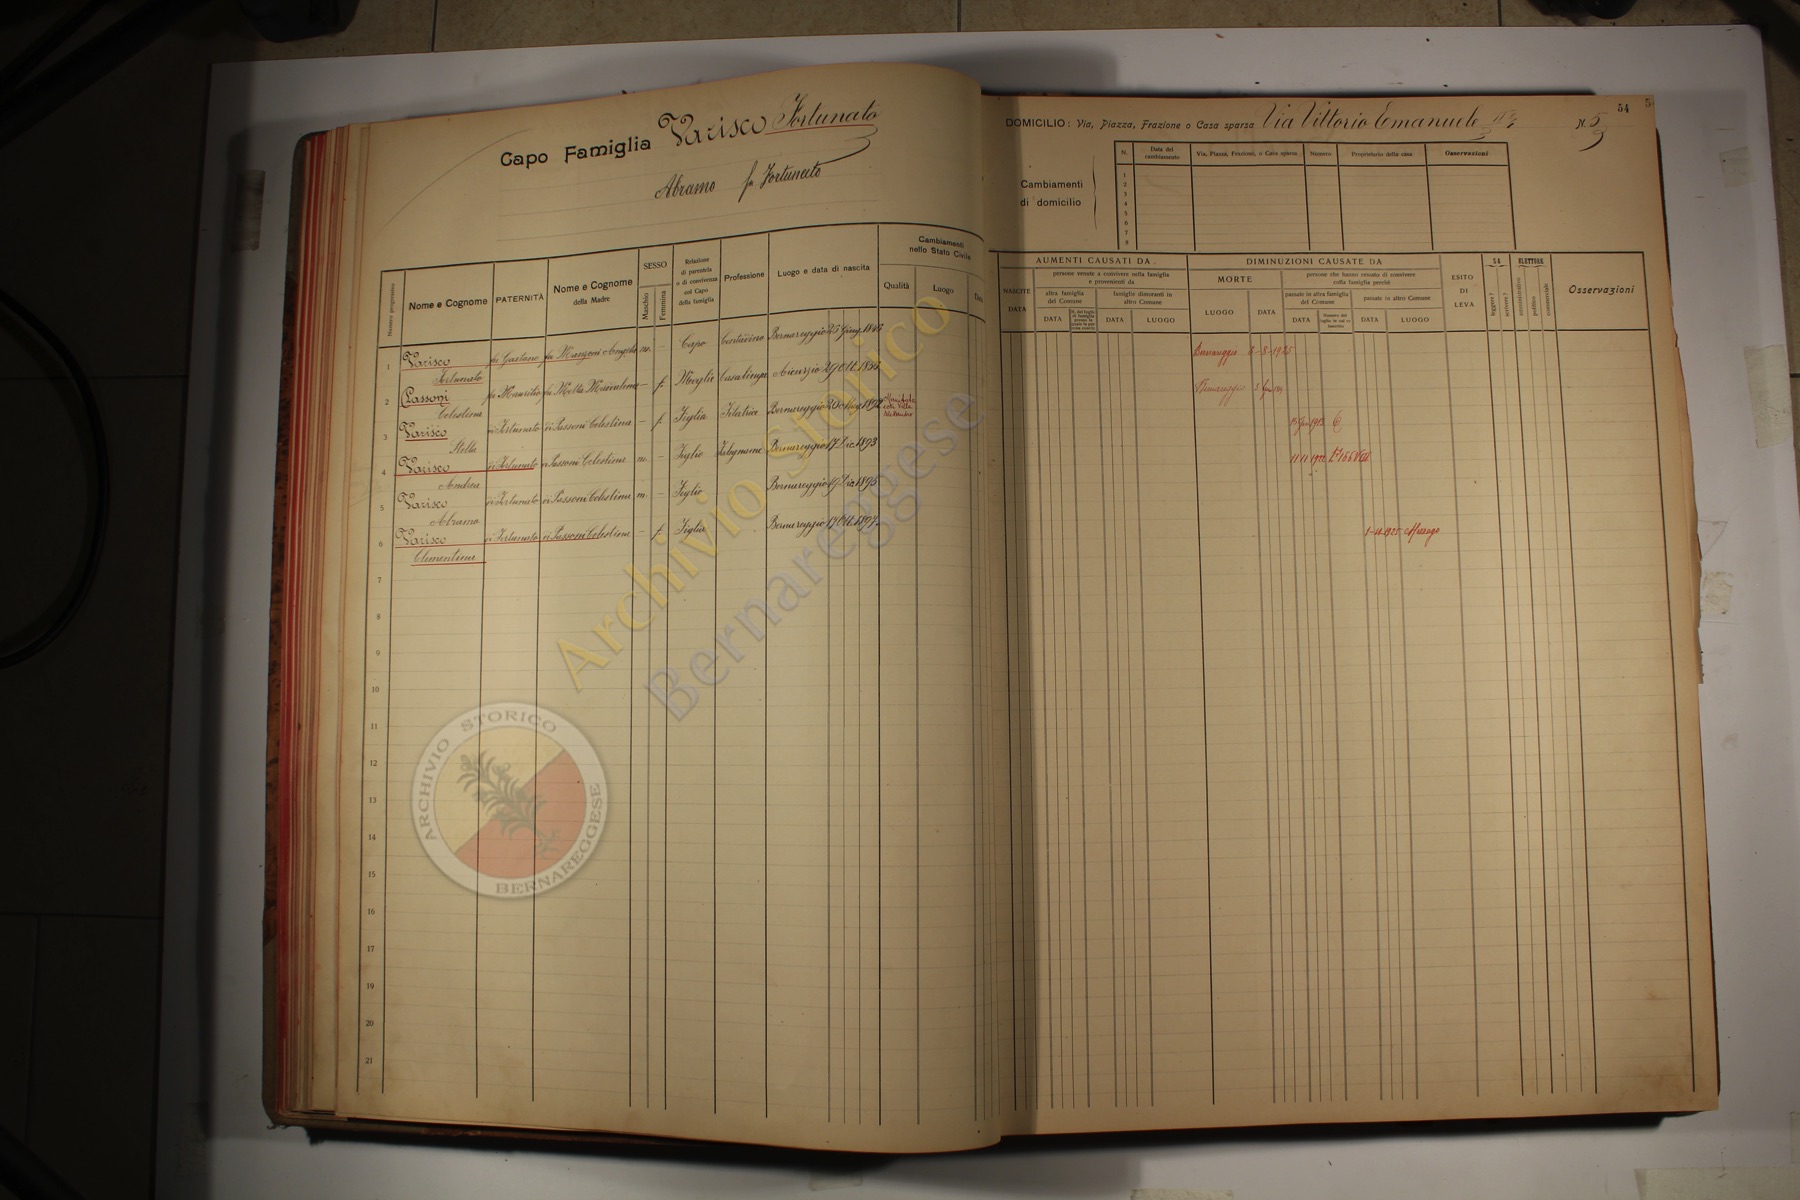 Capo Famiglia Varisco Fortunato
Abramo fu Fortunato
Numero progressivo
Nome e Cognome
PATERNITÀ
Nome e Cognome
della Madre
SESSO
Maschio
Femmina
Relazione
di parentela
o di convivenza
col Capo
della famiglia
Professione
Luogo e data di nascita
Cambiamenti
nello Stato Civile
Qualità
Luogo
Data
1 Varisco fu Gaetano fu Manzoni Angela m. – Capo Contadino Bernareggio 25 Giug. 1845
Fortunato
2 Passoni fu Maurilio fu Motta – f. Moglie Casalinga Aicurzio 29 Ott.
Celestina
3 Varisco di Fortunato di Passoni Celestina – f. Figlia Filatrice Bernareggio 20 Mag. 1892
Stella
4 Varisco di Fortunato di Passoni Celestina m. – Figlio Falegname Bernareggio 17 Dic. 1893
Andrea
5 Varisco di Fortunato di Passoni Celestina m. – Figlio Bernareggio 19 Dic. 1895
Abramo
6 Varisco di Fortunato di Passoni Celestina – f. Figlia Bernareggio 17 Ott. 1897
Clementina
7
8
9
10
11
12
13
14
15
16
17
18
19
20
21
54
DOMICILIO: Via, Piazza, Frazione o Casa sparsa Via Vittorio Emanuele
N. 5
Cambiamenti
di domicilio
N.
Data del
cambiamento
Via, Piazza, Frazioni, o Casa sparsa
Numero
Proprietario della casa
Osservazioni
1
2
3
4
5
6
7
8
AUMENTI CAUSATI DA
NASCITE
DATA
persone venute a convivere nella famiglia
e provenienti da
altra famiglia
del Comune
famiglie dimoranti in
altro Comune
DATA
DATA
LUOGO
DIMINUZIONI CAUSATE DA
MORTE
LUOGO
DATA
persone che hanno cessato di convivere
colla famiglia perchè
passate in altra famiglia
del Comune
passate in altro Comune
DATA
DATA
LUOGO
ESITO
DI
LEVA
SA
leggere?
scrivere?
ELETTORE
amministrativo
politico
commerciale
Osservazioni
Bernareggio 8-8-1925
Bernareggio
15 Gen 1912
11 11 1922
1-11-1925
Archivio Storico
Bernareggese
ARCHIVIO STORICO
BERNAREGGESE